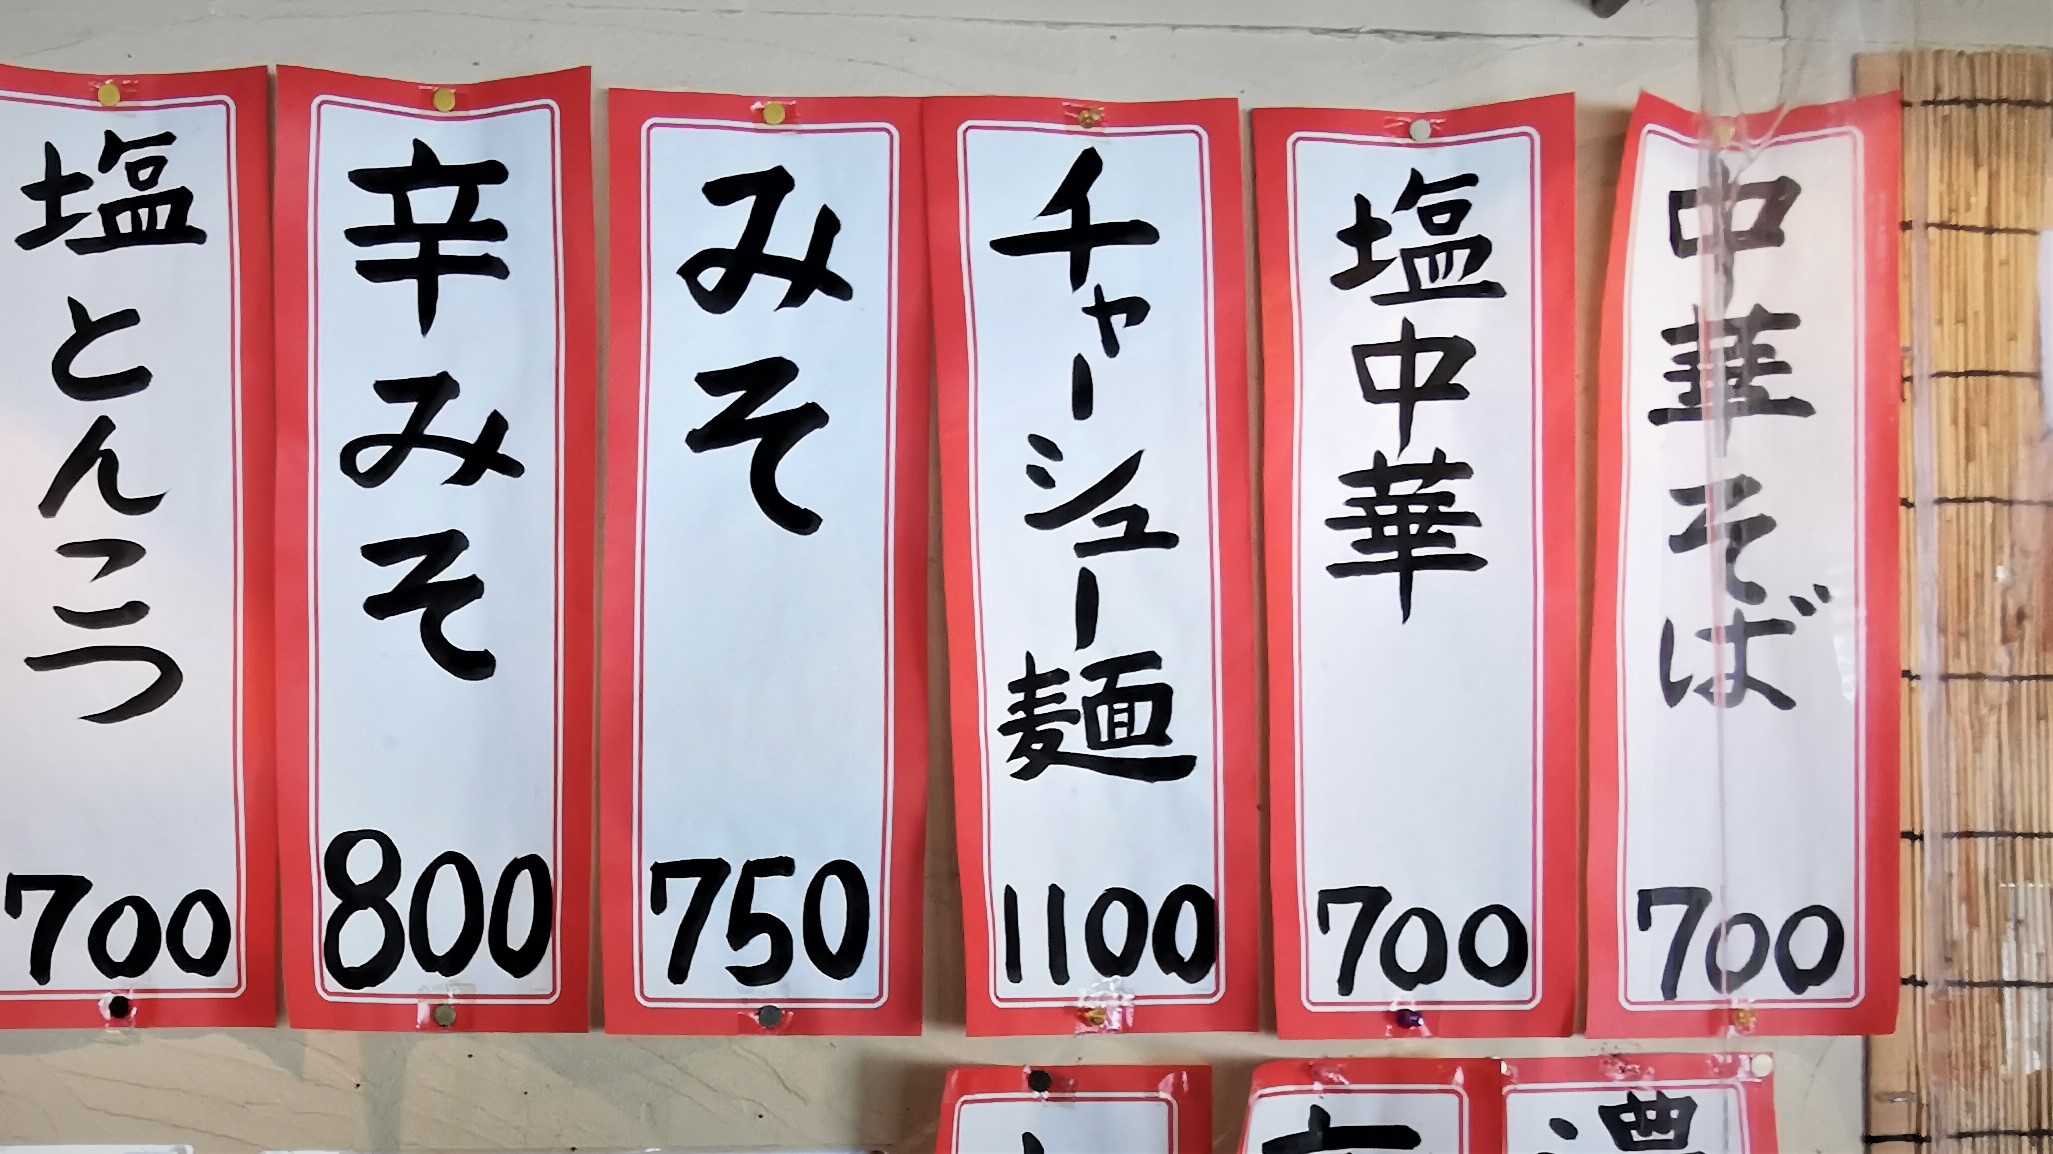 中華そば
700
塩中華
700
チャーシュー麺
1100
みそ
750
辛みそ
800
塩とんこつ
700
濃